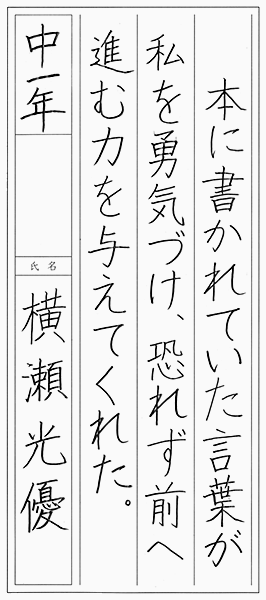 本に書かれていた言葉が
私を勇気づけ、恐れず前へ
進む力を与えてくれた。
中一年
氏名
横瀬光優